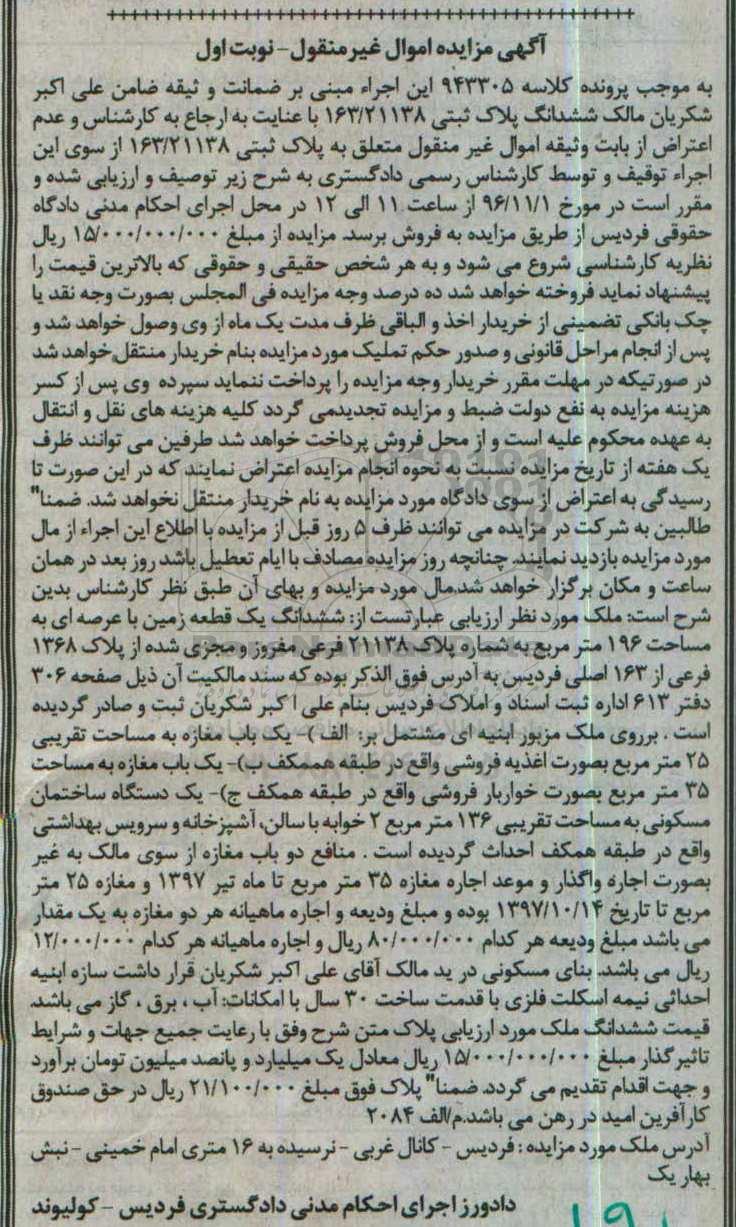 آگهی مزایده اموال غیر منقول - نوبت اول
به موجب پرونده کلاسه ۹۴۳۳۰۵ این اجراء مبنی بر ضمانت و ثیقه ضامن علی اکبر
شکریان مالک ششدانگ پلاک ثبتی ۱۶۳/۲۱۱۳۸ با عنایت به ارجاع به کارشناس و عدم
اعتراض از بابت وثیقه اموال غیر منقول متعلق به پلاک ثبتی ۱۶۳/۲۱۱۳۸ از سوی این
اجراء توقیف و توسط کارشناس رسمی دادگستری به شرح زیر توصیف و ارزیابی شده و
مقرر است در مورخ ۹۶/۱۱/۱ از ساعت ۱۱ الی ۱۲ در محل اجرای احکام مدنی دادگاه
حقوقی فردیس از طریق مزایده به فروش برسد. مزایده از مبلغ ۱۵/۰۰۰/۰۰۰/۰۰۰ ریال
نظریه کارشناسی شروع می شود و به هر شخص حقیقی و حقوقی که بالاترین قیمت را
پیشنهاد نماید فروخته خواهد شد ده درصد وجه مزایده فی المجلس بصورت وجه نقد یا
چک بانکی تضمینی از خریدار اخذ و الباقی ظرف مدت یک ماه از وی وصول خواهد شد و
پس از انجام مراحل قانونی و صدور حکم تملیک مورد مزایده بنام خریدار منتقل خواهد شد
در صورتیکه در مهلت مقرر خریدار وجه مزایده را پرداخت ننماید سپرده وی پس از کسر
هزینه مزایده به نفع دولت ضبط و مزایده تجدیدمی گردد کلیه هزینه های نقل و انتقال
به عهده محکوم علیه است و از محل فروش پرداخت خواهد شد طرفین می توانند ظرف
یک هفته از تاریخ مزایده نسبت به نحوه انجام مزایده اعتراض نمایند که در این صورت تا
رسیدگی به اعتراض از سوی دادگاه مورد مزایده به نام خریدار منتقل نخواهد شد. ضمنا"
طالبین به شرکت در مزایده می توانند ظرف ۵ روز قبل از مزایده با اطلاع این اجراء از مال
مورد مزایده بازدید نمایند. چنانچه روز مزایده مصادف با ایام تعطیل باشد روز بعد در همان
ساعت و مکان برگزار خواهد شد.مال مورد مزایده و بهای آن طبق نظر کارشناس بدین
شرح است: ملک مورد نظر ارزیابی عبارتست از: ششدانگ یک قطعه زمین با عرصه ای به
مساحت ۱۹۶ متر مربع به شماره پلاک ۲۱۱۳۸ فرعی مفروز و مجزی شده از پلاک ۱۳۶۸
فرعی از ۱۶۳ اصلی فردیس به آدرس فوق الذکر بوده که سند مالکیت آن ذیل صفحه ۳۰۶
دفتر ۶۱۳ اداره ثبت اسناد و املاک فردیس بنام علی اکبر شکریان ثبت و صادر گردیده
است . برروی ملک مزبور ابنیه ای مشتمل بر: الف )- یک باب مغازه به مساحت تقریبی
۲۵ متر مربع بصورت اغذیه فروشی واقع در طبقه هممکف ب)- یک باب مغازه به مساحت
۳۵ متر مربع بصورت خواربار فروشی واقع در طبقه همکف ج)- یک دستگاه ساختمان
مسکونی به مساحت تقریبی ۱۳۶ متر مربع ۲ خوابه با سالن، آشپزخانه و سرویس بهداشتی
واقع در طبقه همکف احداث گردیده است . منافع دو باب مغازه از سوی مالک به غیر
بصورت اجاره واگذار و موعد اجاره مغازه ۳۵ متر مربع تا ماه تیر ۱۳۹۷ و مغازه ۲۵ متر
مربع تا تاریخ ۱۳۹۷/۱۰/۱۴ بوده و مبلغ ودیعه و اجاره ماهیانه هر دو مغازه به یک مقدار
می باشد مبلغ ودیعه هر کدام ۸۰/۰۰۰/۰۰۰ ریال و اجاره ماهیانه هر کدام ۱۲/۰۰۰/۰۰۰
ریال می باشد. بنای مسکونی در ید مالک آقای علی اکبر شکریان قرار داشت سازه ابنیه
احداثی نیمه اسکلت فلزی با قدمت ساخت ۳۰ سال با امکانات: آب ، برق ، گاز می باشد.
قیمت ششدانگ ملک مورد ارزیابی پلاک متن شرح وفق با رعایت جمیع جهات و شرایط
تاثیرگذار مبلغ ۱۵/۰۰۰/۰۰۰/۰۰۰ ریال معادل یک میلیارد و پانصد میلیون تومان برآورد
و جهت اقدام تقدیم می گردد. ضمنا" پلاک فوق مبلغ ۲۱/۱۰۰/۰۰۰ ریال در حق صندوق
کارآفرین امید در رهن می باشد.م/الف ۲۰۸۴
آدرس ملک مورد مزایده : فردیس - کانال غربی - نرسیده به ۱۶ متری امام خمینی - نبش
بهار یک
دادورز اجرای احکام مدنی دادگستری فردیس - کولیوند